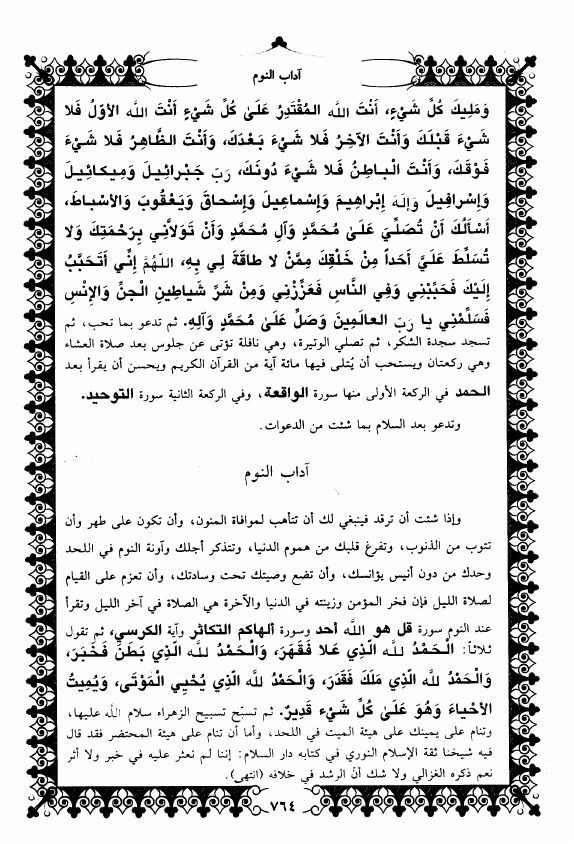 آداب النوم
وَمَلِيكَ كُلِّ شَيْءٍ، أَنْتَ الله المُقْتَدِرُ عَلَىٰ كُلِّ شَيْءٍ أَنْتَ الله الأوّلُ فَلا
شَيْءَ قَبْلَكَ وَأَنْتَ الآخِرُ فَلا شَيْءَ بَعْدَكَ، وَأَنْتَ الظَّاهِرُ فَلا شَيْءَ
فَوْقَكَ، وَأَنْتَ الْباطِنُ فَلا شَيْءَ دُونَكَ، رَبّ جَبْرائِيلَ وَمِيكائِيلَ
وَإِسْرافِيلَ وَإِلٰهَ إِبْراهِيمَ وَإِسْماعِيلَ وَإِسْحاقَ وَيَعْقُوبَ وَالأَسْباطِ،
أَسْأَلُكَ أَنْ تُصَلِّيَ عَلَىٰ مُحَمَّدٍ وَآلِ مُحَمَّدٍ وَأَنْ تَوَلاَّنِي بِرَحْمَتِكَ وَلا
تُسَلِّطَ عَلَيَّ أَحَداً مِنْ خَلْقِكَ مِمَّنْ لا طاقَةَ لِي بِهِ، اللهُمَّ إِنِّي أَتَحَبَّبُ
إِلَيْكَ فَحَبِّبْنِي وَفِي النَّاسِ فَعَزِّزْنِي وَمِنْ شَرِّ شَياطِينِ الْجِنِّ وَالإِنْسِ
فَسَلِّمْنِي يا رَبّ العالَمِينَ وَصَلِّ عَلَىٰ مُحَمَّدٍ وَآلِهِ. ثم تدعو بما تحب، ثم
تسجد سجدة الشكر، ثم تصلي الوتيرة، وهي نافلة تؤتى عن جلوس بعد صلاة العشاء
وهي ركعتان ويستحب أن يُتلى فيها مائة آية من القرآن الكريم ويحسن أن يقرأ بعد
الحمد في الركعة الأولى منها سورة الواقعة، وفي الركعة الثانية سورة التوحيد.
وتدعو بعد السلام بما شئت من الدعوات.
آداب النوم
وإذا شئت أن ترقد فينبغي لك أن تتأهب لموافاة المنون، وأن تكون على طهر وأن
تتوب من الذنوب، وتفرغ قلبك من هموم الدنيا، وتتذكر أجلك وآونة النوم في اللحد
وحدك من دون أنيس يؤانسك، وأن تضع وصيتك تحت وسادتك، وأن تعزم على القيام
لصلاة الليل فإن فخر المؤمن وزينته في الدنيا والآخرة هي الصلاة في آخر الليل وتقرأ
عند النوم سورة قل هو الله أحد وسورة ألهاكم التكاثر وآية الكرسي، ثم تقول
ثلاثاً: الْحَمْدُ للهِ الَّذِي عَلا فَقَهَرَ، وَالْحَمْدُ للهِ الّذِي بَطَنَ فَخَبَرَ،
وَالْحَمْدُ للهِ الّذِي مَلَكَ فَقَدَرَ، وَالْحَمْدُ للهِ الّذِي يُحْيِي الْمَوْتَى، وَيُمِيتُ
الأحْياءَ وَهُوَ عَلَىٰ كُلِّ شَيْءٍ قَدِيرٌ. ثم تسبّح تسبيح الزهراء سلام الله عليها،
وتنام على يمينك على هيئة الميت في اللحد، وأما أن تنام على هيئة المحتضر فقد قال
فيه شيخنا ثقة الإسلام النوري في كتابه دار السلام: إننا لم نعثر عليه في خبر ولا أثر
نعم ذكره الغزالي ولا شك أنّ الرشد في خلافه (انتهى).
٧٦٤